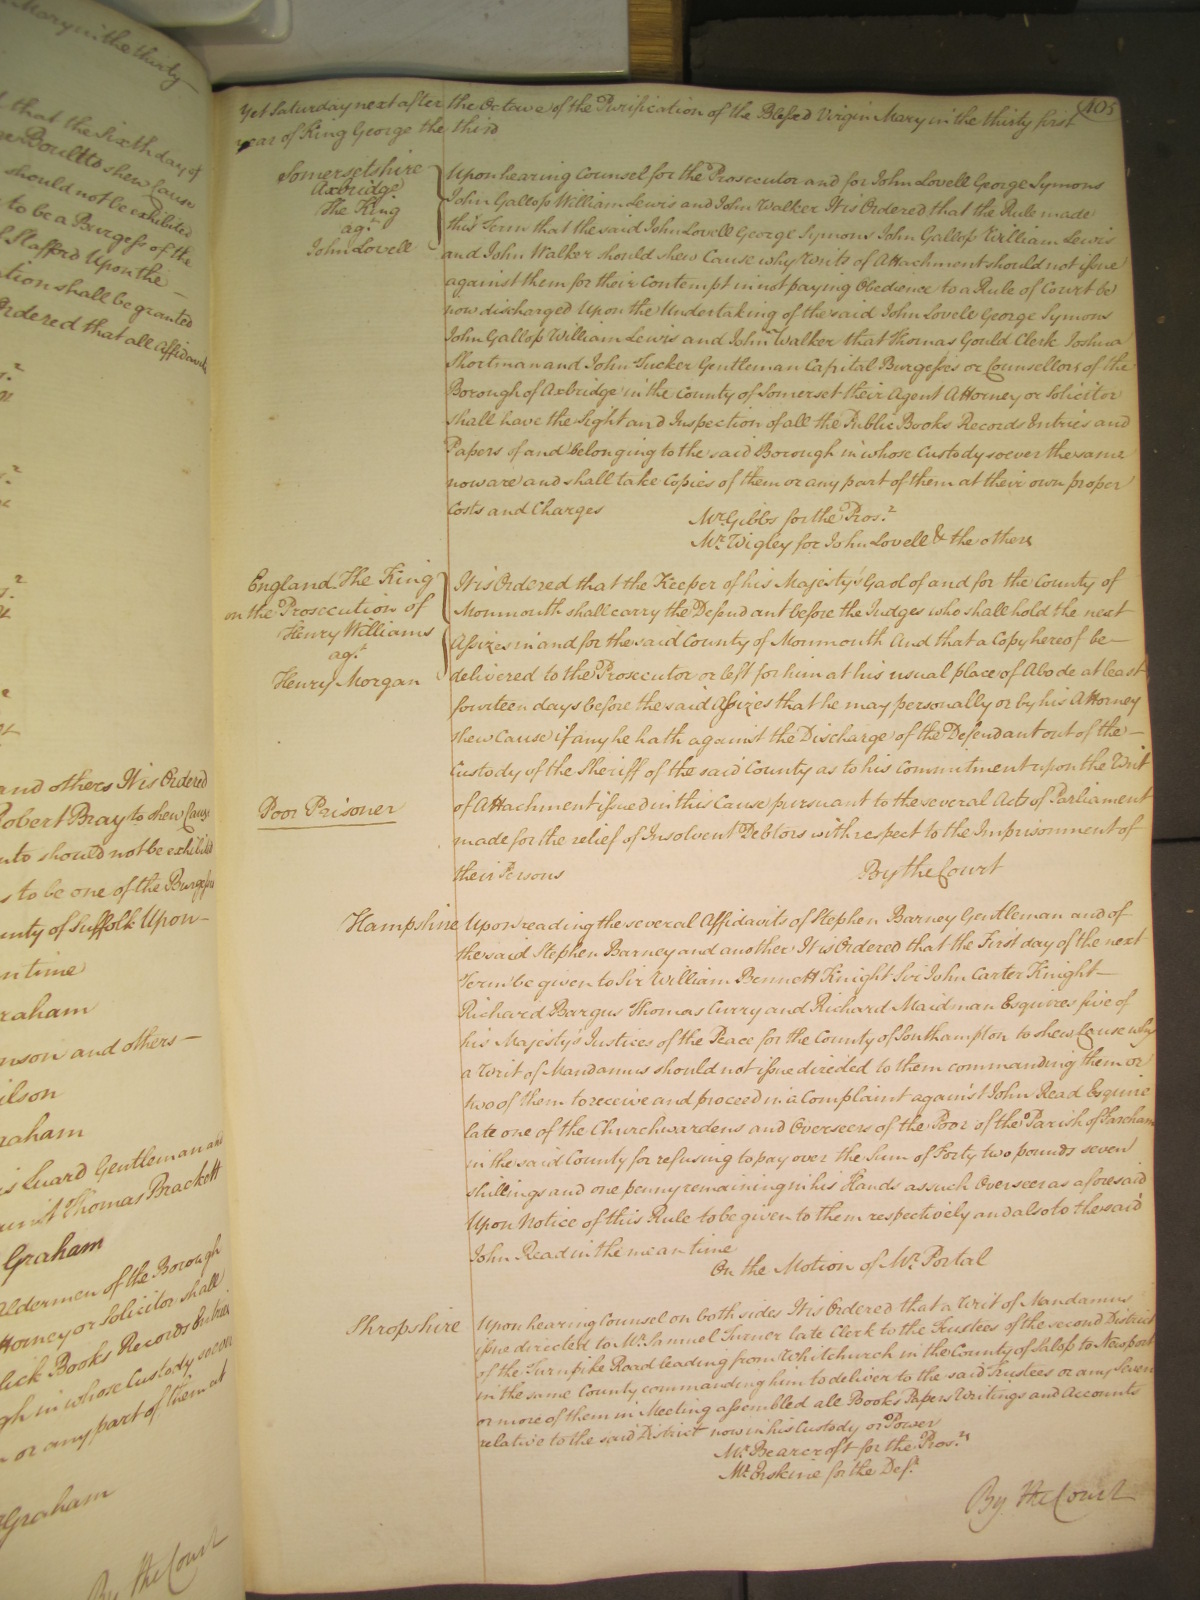 Mary in the thirty
d that the Sixth day of
Boult to shew Cause
should not be exhibited
to be a Burgess of the
Stafford Upon the
tion shall be granted
Ordered that all Affidavits
and others It is Ordered
Robert Bray to shew Cause
nto should not be exhibited
s to be one of the Burgesses
unty of Suffolk Upon
n time
raham
nson and others
ilson
raham
is Luard Gentleman and
Thomas Brackett
Graham
Aldermen of the Borough
ttorney or Solicitor shall
lick Books Records Entries
gh in whose Custody soever
or any part of them at
Graham
By the Court
405
Yet Saturday next after the Octave of the Purification of the Blessed Virgin Mary in the thirty first
year of King George the third
Somersetshire
Axbridge
The King
agt
John Lovell
Upon hearing Counsel for the Prosecutor and for John Lovell George Symons
John Gallop William Lewis and John Walker It is Ordered that the Rule made
this Term that the said John Lovell George Symons John Gallop William Lewis
and John Walker should shew Cause why Writs of Attachment should not issue
against them for their Contempt in not paying Obedience to a Rule of Court be
now discharged Upon the Undertaking of the said John Lovell George Symons
John Gallop William Lewis and John Walker that Thomas Gould Clerk Joshua
Shortman and John Tucker Gentleman Capital Burgesses or Counsellors of the
Borough of Axbridge in the County of Somerset their Agent Attorney or Solicitor
shall have the Sight and Inspection of all the Public Books Records Entries and
Papers of and belonging to the said Borough in whose Custody soever the same
now are and shall take Copies of them or any part of them at their own proper
Costs and Charges
Mr. Gibbs for the Prosr.
Mr. Wigley for John Lovell & the others
England The King
on the Prosecution of
Henry Williams
agt
Henry Morgan
Poor Prisoner
It is Ordered that the Keeper of his Majesty's Gaol of and for the County of
Monmouth shall carry the Defendant before the Judges who shall hold the next
Assizes in and for the said County of Monmouth And that a Copy hereof be
delivered to the Prosecutor or left for him at his usual place of Abode at least
fourteen days before the said Assizes that he may personally or by his Attorney
shew Cause if any he hath against the Discharge of the Defendant out of the
Custody of the Sheriff of the said County as to his Commitment upon the Writ
of Attachment issued in this Cause pursuant to the several Acts of Parliament
made for the relief of Insolvent Debtors with respect to the Imprisonment of
their Persons
By the Court
Hampshire
Upon reading the several Affidavits of Stephen Barney Gentleman and of
the said Stephen Barney and another It is Ordered that the First day of the next
Term be given to Sir William Bennett Knight Sir John Carter Knight
Richard Bargus Thomas Curry and Richard Maidman Esquires five of
his Majesty's Justices of the Peace for the County of Southampton to shew Cause why
a Writ of Mandamus should not issue directed to them commanding them or
two of them to receive and proceed in a Complaint against John Read Esquire
late one of the Churchwardens and Overseers of the Poor of the Parish of Fareham
in the said County for refusing to pay over the Sum of Forty two pounds seven
shillings and one penny remaining in his Hands as such Overseer as aforesaid
Upon Notice of this Rule to be given to them respectively and also to the said
John Read in the mean time
On the Motion of Mr. Portal
Shropshire
Upon hearing Counsel on both sides It is Ordered that a Writ of Mandamus
issue directed to Mr. Samuel Turner late Clerk to the Trustees of the second District
of the Turnpike Road leading from Whitchurch in the County of Salop to Newport
in the same County commanding him to deliver to the said Trustees or any Seven
or more of them in Meeting assembled all Books Papers Writings and Accounts
relative to the said District now in his Custody or Power
Mr. Bearcroft for the Prosr.
Mr. Erskine for the Deft.
By the Court